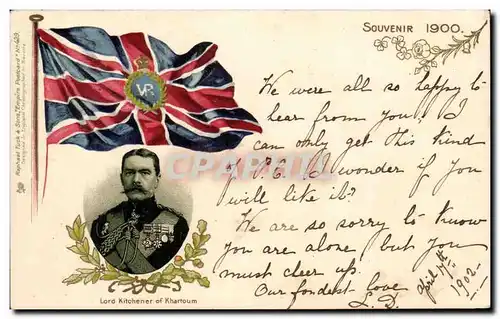 SOUVENIR 1900.
Raphael Tuck & Sons, "Empire" Postcard No 489.
V.R.I.
CPARAMA.com
We were all so happy to
hear from you! I
can only get this kind
of P.C. I wonder if you
will like it?
We are so sorry to know
you are alone, but you
must cheer up.
Our fondest love
L.D.
April 17th
1902.
Lord Kitchener of Khartoum